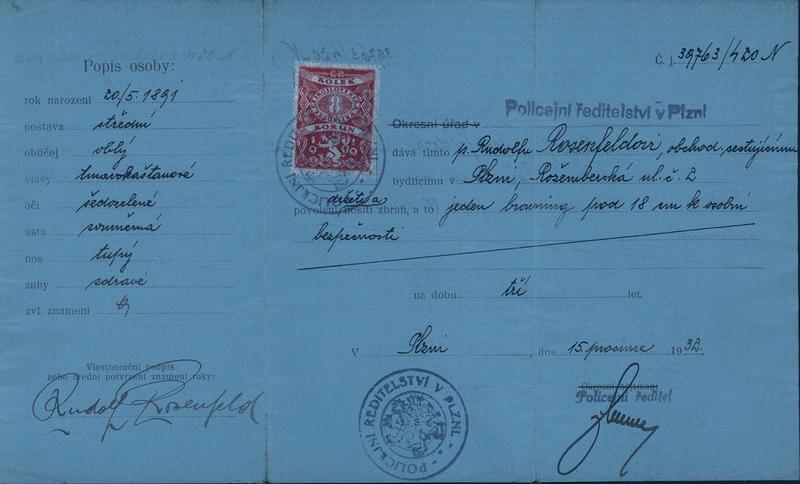 Popis osoby:
rok narození 20/5. 1891
postava střední
obličej oblý
vlasy tmavokaštanové
oči šedozelené
ústa souměrná
nos tupý
zuby zdravé
zvl. znamení
Vlastnoruční podpis
nebo úřední potvrzení znamení ruky:
Rudolf Rosenfeld
KOLEK
8
KORUN
1919
POLICEJNÍ ŘEDITELSTVÍ
Č. j. 39763/420 N
Policejní ředitelství v Plzni
Okresní úřad v
dává tímto p. Rudolfu Rosenfeldovi, obchod. cestujícímu
bydlícímu v Plzni, Rožmberská ul. č. 2
držeti a
povolení nositi zbraň, a to jeden browning pod 18 cm k osobní
bezpečnosti
na dobu tří let.
V Plzni, dne 15. prosince 1932.
POLICEJNÍ ŘEDITELSTVÍ V PLZNI.
Okresní hejtman:
Policejní ředitel